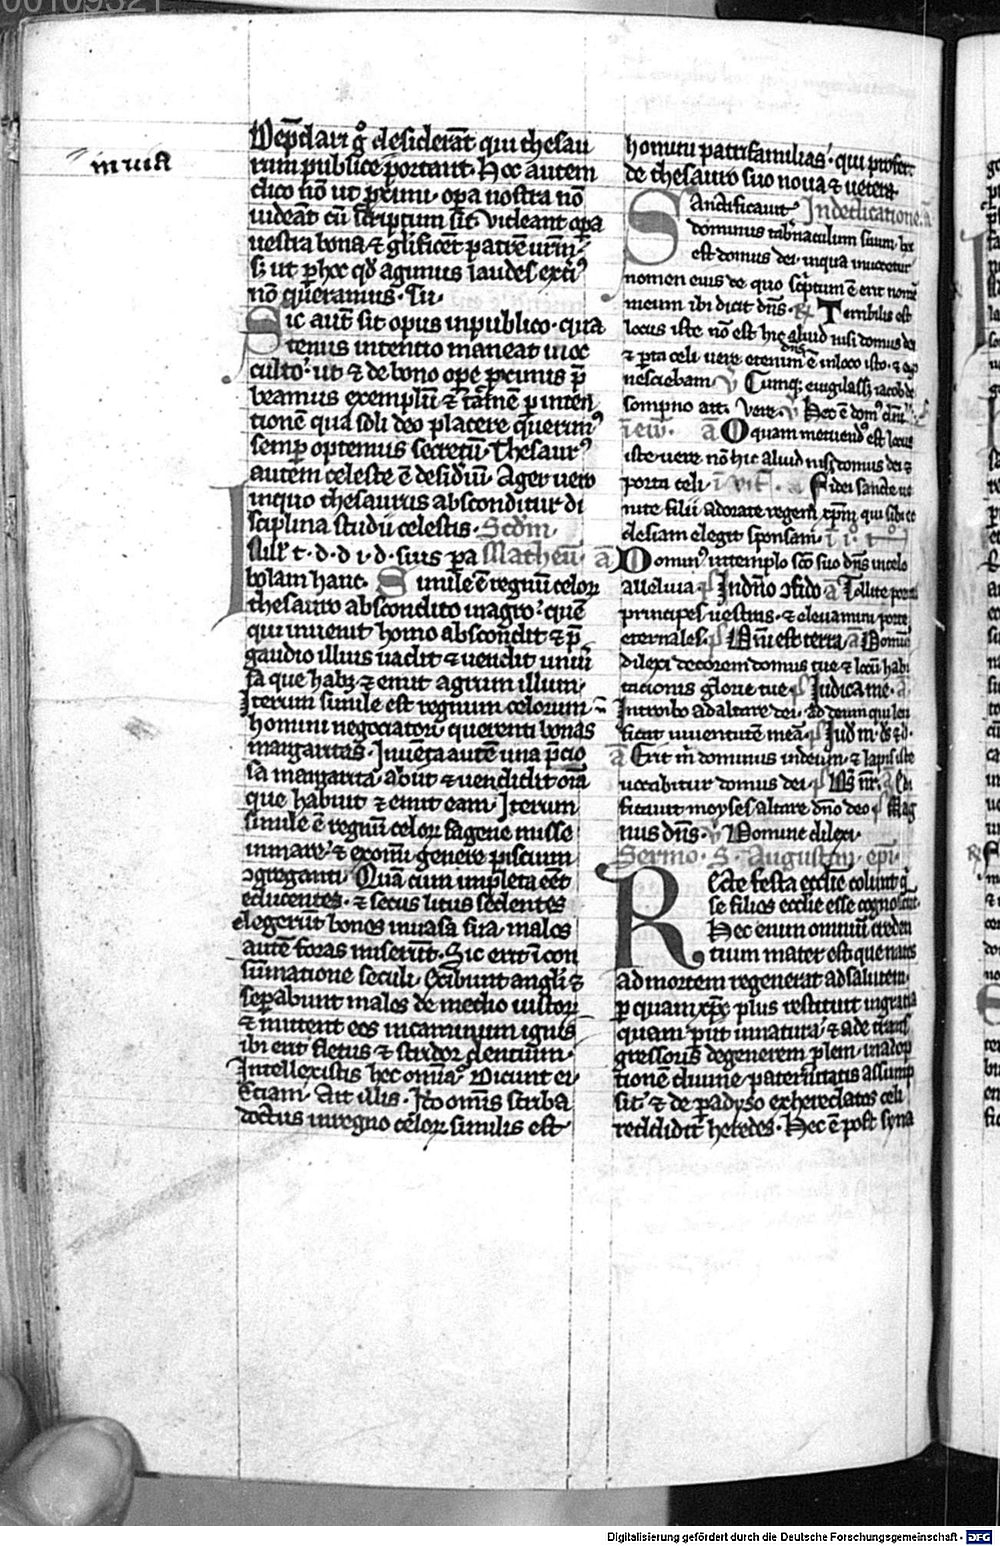 00109321
in uia
Depdari g desiderat qui thesau
rum publice portant. Hec autem
dico no ut primi. opa nostra no
uideat cu scriptum sit. Videant opa
uestra bona. & glificet patre urm.
s; ut p hoc qd agimus laudes exti
no queramus. Tu.
Sic aut sit opus in publico. qua
tenus intentio maneat in oc
culto. ut & de bono ope primis p
beamus exemplu. & tam ne p inten
tione qua soli deo placere querim
semp optemus secretu. Thesaur
autem celeste e desideriu. Ager uero
in quo thesaurus absconditur di
sciplina studii celestis. Scdm.
Matheu.
In illr t. d. d i. d. suis pa
bolam hanc. Simile e regnu celor
thesauro abscondito in agro. que
qui inuenit homo abscondit. & p
gaudio illius uadit & uendit uniu
sa que habz. & emit agrum illum.
Iterum simile est regnum celorum
homini negociatori querenti bonas
margaritas. Inuenta aute una pcio
sa margarita. abiit & uendidit oia
que habuit & emit eam. Iterum
simile e regnu celor sagene misse
in mare. & ex omi genere piscium
ogreganti. Qua cum impleta eet
educentes. & secus litus sedentes
elegerut bonos in uasa sua. malos
aute foras miserut. Sic erit i con
summatione seculi. Exibunt angli &
sepabunt malos de medio iustor
& mittent eos in caminum ignis
ibi erit fletus & stridor dentium.
Intellexistis hec omia. Dicunt ei
Etiam. Ait illis. Ido omis scriba
doctus in regno celor similis est
homini patrifamilias. qui profert
de thesauro suo noua & uetera.
In dedicatione. a
Sanctificauit
dominus tabnaculum suum. hec
est domus dei. in qua inuocetur
nomen eius de quo scptum e. erit nome
meum ibi dicit dns. R Terribilis est
locus iste. no est hic aliud nisi domus dei
& pta celi. uere etenim dns e in loco isto. & ego
nesciebam. V Cumq; euigilass; iacob de
sompno ait. Vere. V Hec e dom dni
a O quam metuend est locus
iste. uere no hic aliud nisi domus dei &
porta celi. Fidei sancte ut
nite filii adorate regem xpm. qui sibi ec
clesiam elegit sponsam.
a Domin in templo sco suo dns in celo
alleluia. ps In dno ofido. a Tollite portas
principes uestras. & eleuamini porte
eternales. ps Dni est terra. a Domine
dilexi decorem domus tue & locu habi
tacionis glorie tue. ps Iudica me. a
Introibo ad altare dei. ad deum qui leti
ficat iuuentute mea. ps Iud m. ds &d.
a Erit m dominus in deum. & lapis iste
uocabitur domus dei. ps Ds nr. a Edi
ficauit moyses altare dno deo. ps Mag
nus dns. V Domine dilexi.
Sermo. S. Augustini. epi.
Recte festa ecclie colunt q
se filios ecclie esse cognoscunt.
Hec enim omniu creden
tium mater est. que natos
ad mortem regenerat ad salutem.
p quam xpc plus restituit in gratia
quam put in natura. & ade trans
gressoris degenerem plem. in adop
tione diuine paternitatis assump
sit. & de padyso exheredatos celi
reddidit heredes. Hec e post syna
Digitalisierung gefördert durch die Deutsche Forschungsgemeinschaft - DFG